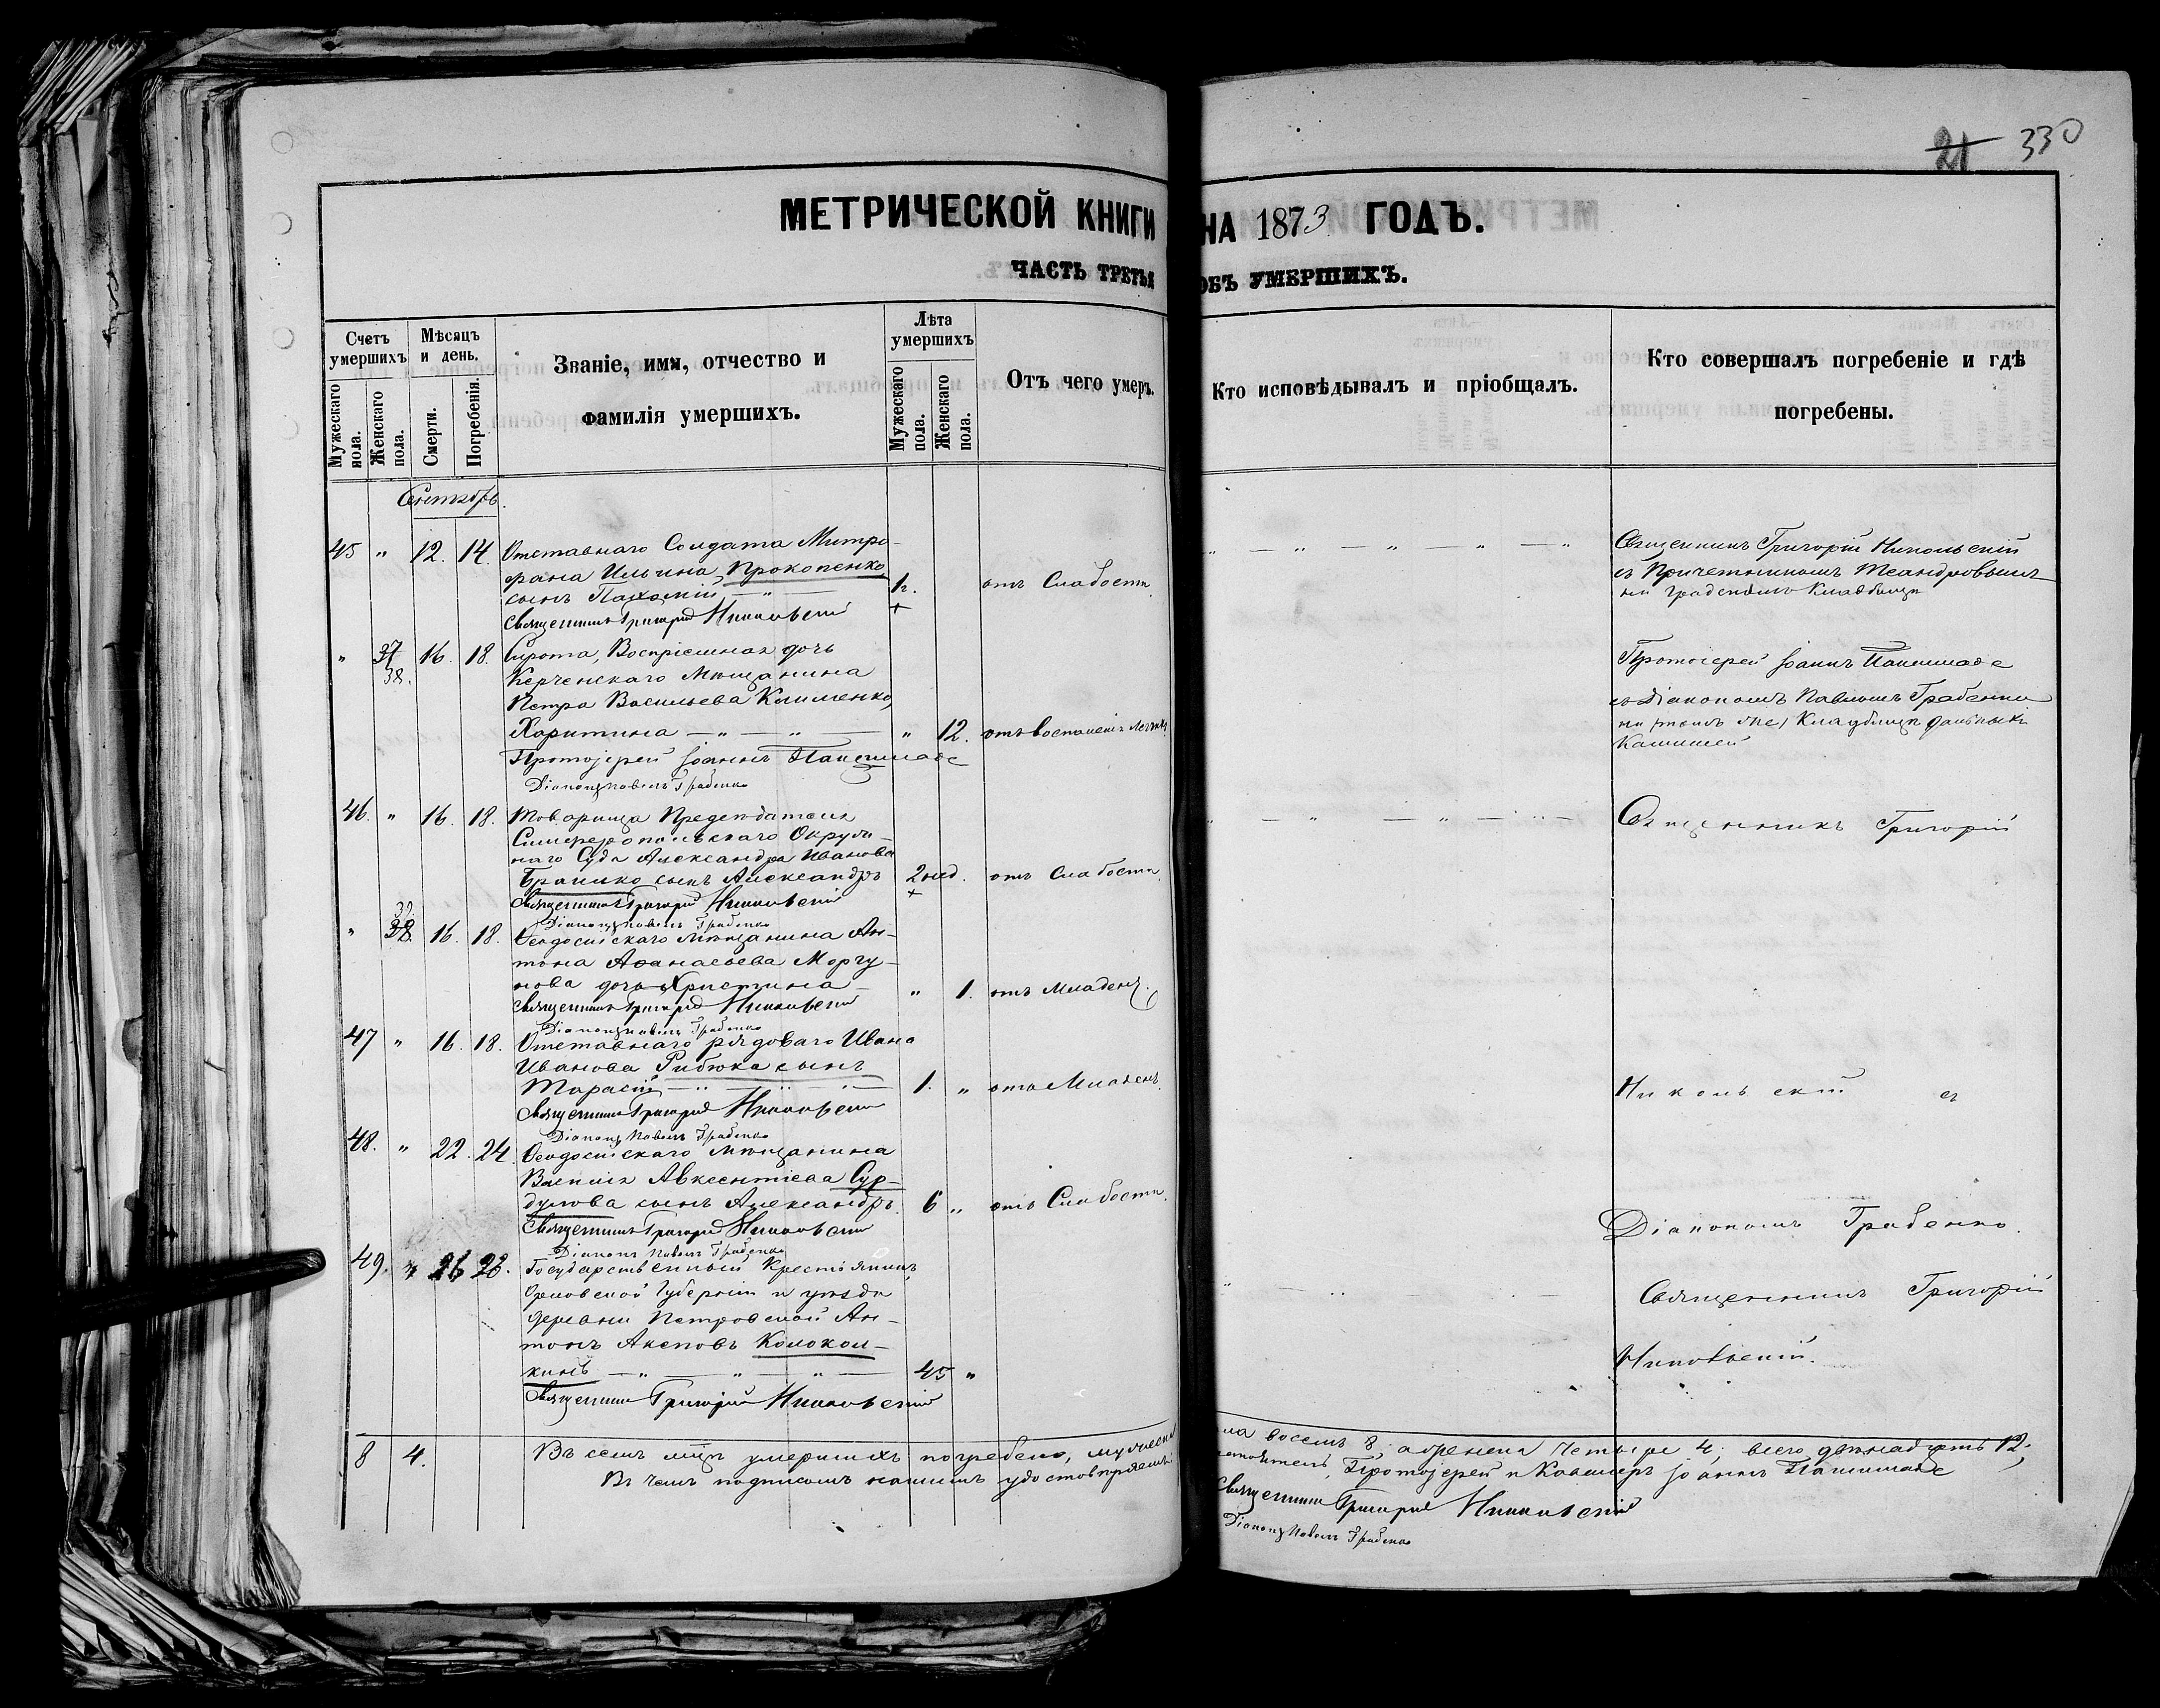 21 330
МЕТРИЧЕСКОЙ КНИГИ НА 1873 ГОДЪ.
ЧАСТЬ ТРЕТЬЯ ОБЪ УМЕРШИХЪ.
Счетъ умершихъ
Мужескаго пола.
Женскаго пола.
Мѣсяцъ и день.
Смерти.
Погребенія.
Званіе, имя, отчество и
фамилія умершихъ.
Лѣта умершихъ
Мужескаго пола.
Женскаго пола.
Отъ чего умеръ.
Кто исповѣдывалъ и пріобщалъ.
Кто совершалъ погребеніе и гдѣ
погребены.
Сентябрь.
45 " 12. 14. Отставнаго Солдата Митро-
фана Ильина Прокопенко
сынъ Пахомій — " — 1 отъ Слабости
Священникъ Григорій Никольскій
Священникъ Григорій Никольскій
съ Причетникомъ
на градскомъ Кладбищѣ
" 37 38. 16. 18. Сирота, Воспріемная дочь
Керченскаго Мѣщанина
Петра Васильева Клименко,
Харитина — " — " — " 12. отъ воспаленія легкихъ
Протоіерей Іоаннъ
Діаконъ Павелъ Грабенко
Протоіерей Іоаннъ
съ Діакономъ Павломъ Грабенко
на томъ же Кладбищѣ
46. " 16. 18. Товарища Предсѣдателя
Симферопольскаго Окруж-
наго Суда Александра Иванова
сынъ Александръ 2 нед. отъ Слабости
Священникъ Григорій Никольскій
Діаконъ Павелъ Грабенко
Священникъ Григорій
" 39 38. 16. 18. Ѳеодосійскаго Мѣщанина Ан-
тона Аѳанасьева Моргу-
нова дочь Христина — " 1. отъ Младенч.
Священникъ Григорій Никольскій
Діаконъ Павелъ Грабенко
47 " 16. 18. Отставнаго рядоваго Ивана
Иванова Рибюка сынъ
Тарасій — " — " — " — 1. " отъ Младенч.
Священникъ Григорій Никольскій
Діаконъ Павелъ Грабенко
Никольскій съ
48. " 22. 24. Ѳеодосійскаго Мѣщанина
Василія Авксентіева Сур-
дулова сынъ Александръ. 6 " отъ Слабости.
Священникъ Григорій Никольскій
Діаконъ Павелъ Грабенко
Діакономъ Грабенко.
49. " 26 28. Государственный Крестьянинъ
Орловской Губерніи и уѣзда
деревни Петровской Ан-
тонъ Колокол-
кинъ — " — " — " — 45 "
Священникъ Григорій Никольскій
Священникъ Григорій
Никольскій.
8 4. Въ семъ мцѣ умершихъ погребено, мужеска
пола восемь 8, а женска четыре 4, всего двѣнадцать 12,
Въ чемъ подписомъ нашимъ удостовѣряемъ:
Протоіерей и Кавалеръ Іоаннъ
Священникъ Григорій Никольскій
Діаконъ Павелъ Грабенко